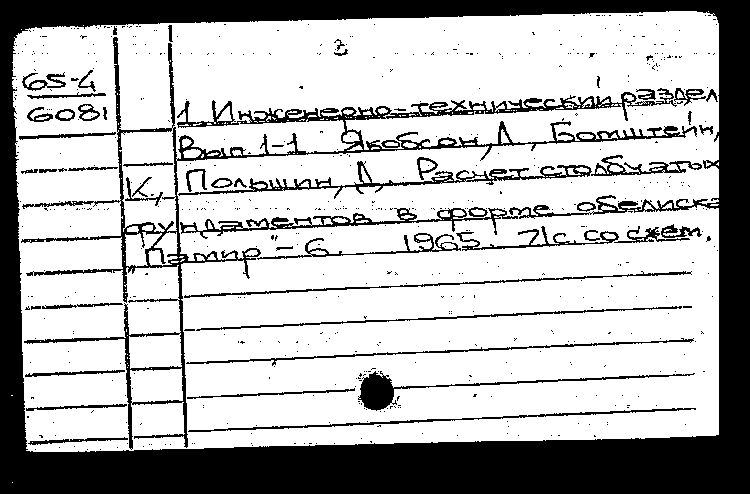 3
65-4
6081
1. Инженерно-технический раздел
Вып. 1-1 Якобсон, Л., Бомштейн,
К., Польшин, Д. Расчет столбчатых
фундаментов в форме обелиска
„Памир" - 6. 1965. 71с. со схем.